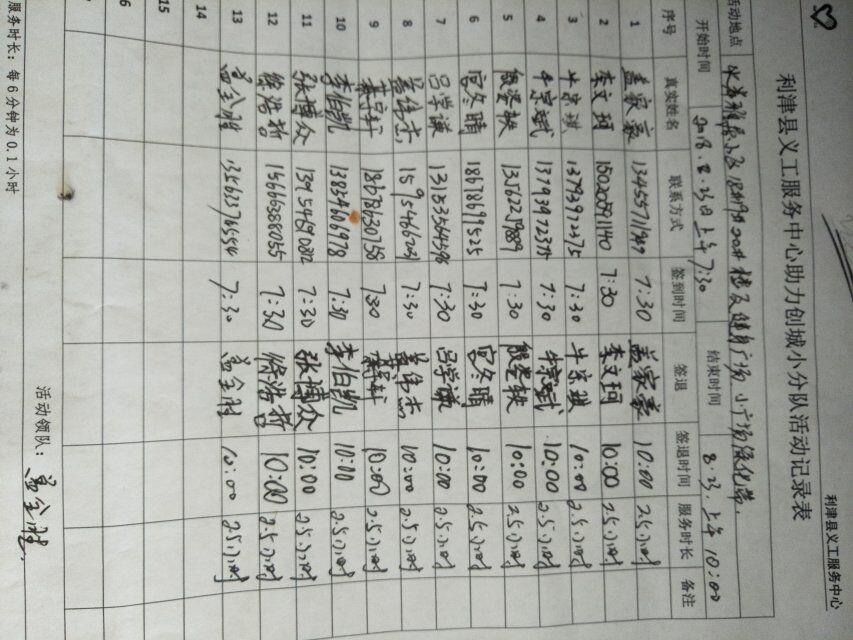 利津县义工服务中心
利津县义工服务中心助力创城小分队活动记录表
活动地点
楼及健身广场 小广场绿化带.
开始时间 2018.8.23日上午7:30 结束时间 8.23.上午10:00
序号 真实姓名 联系方式 签到时间 签退 签退时间 服务时长 备注
1 盖家豪 7:30 盖家豪 10:00 2.5小时
2 李文珂 7:30 李文珂 10:00 2.5小时
3 牛京琪 13793972275 7:30 牛京琪 10:00 2.5小时
4 牛京斌 13793972375 7:30 牛京斌 10:00 2.5小时
5 13562279889 7:30 10:00 2.5小时
6 宫冬晴 18678699525 7:30 宫冬晴 10:00 2.5小时
7 吕学谦 13153564596 7:30 吕学谦 10:00 2.5小时
8 盖伟杰 7:30 盖伟杰 10:00 2.5小时
9 18678630758 7:30 10:00 2.5小时
10 李伯凯 13854606978 7:30 李伯凯 10:00 2.5小时
11 张博众 7:30 张博众 10:00 2.5小时
12 徐浩哲 15666388055 7:30 徐浩哲 10:00 2.5小时
13 盖全胜 13562765554 7:30 盖全胜 10:00 2.5小时
14
15
6
7
活动领队：盖全胜.
服务时长：每6分钟为0.1小时